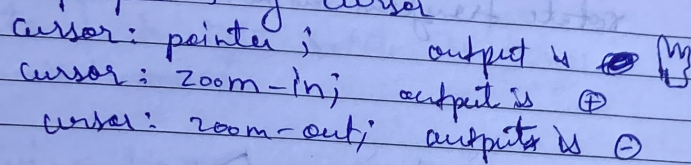 cursor
cursor: pointer; output is
cursor: zoom-in; output is ⊕
cursor: zoom-out; outputs is ⊖